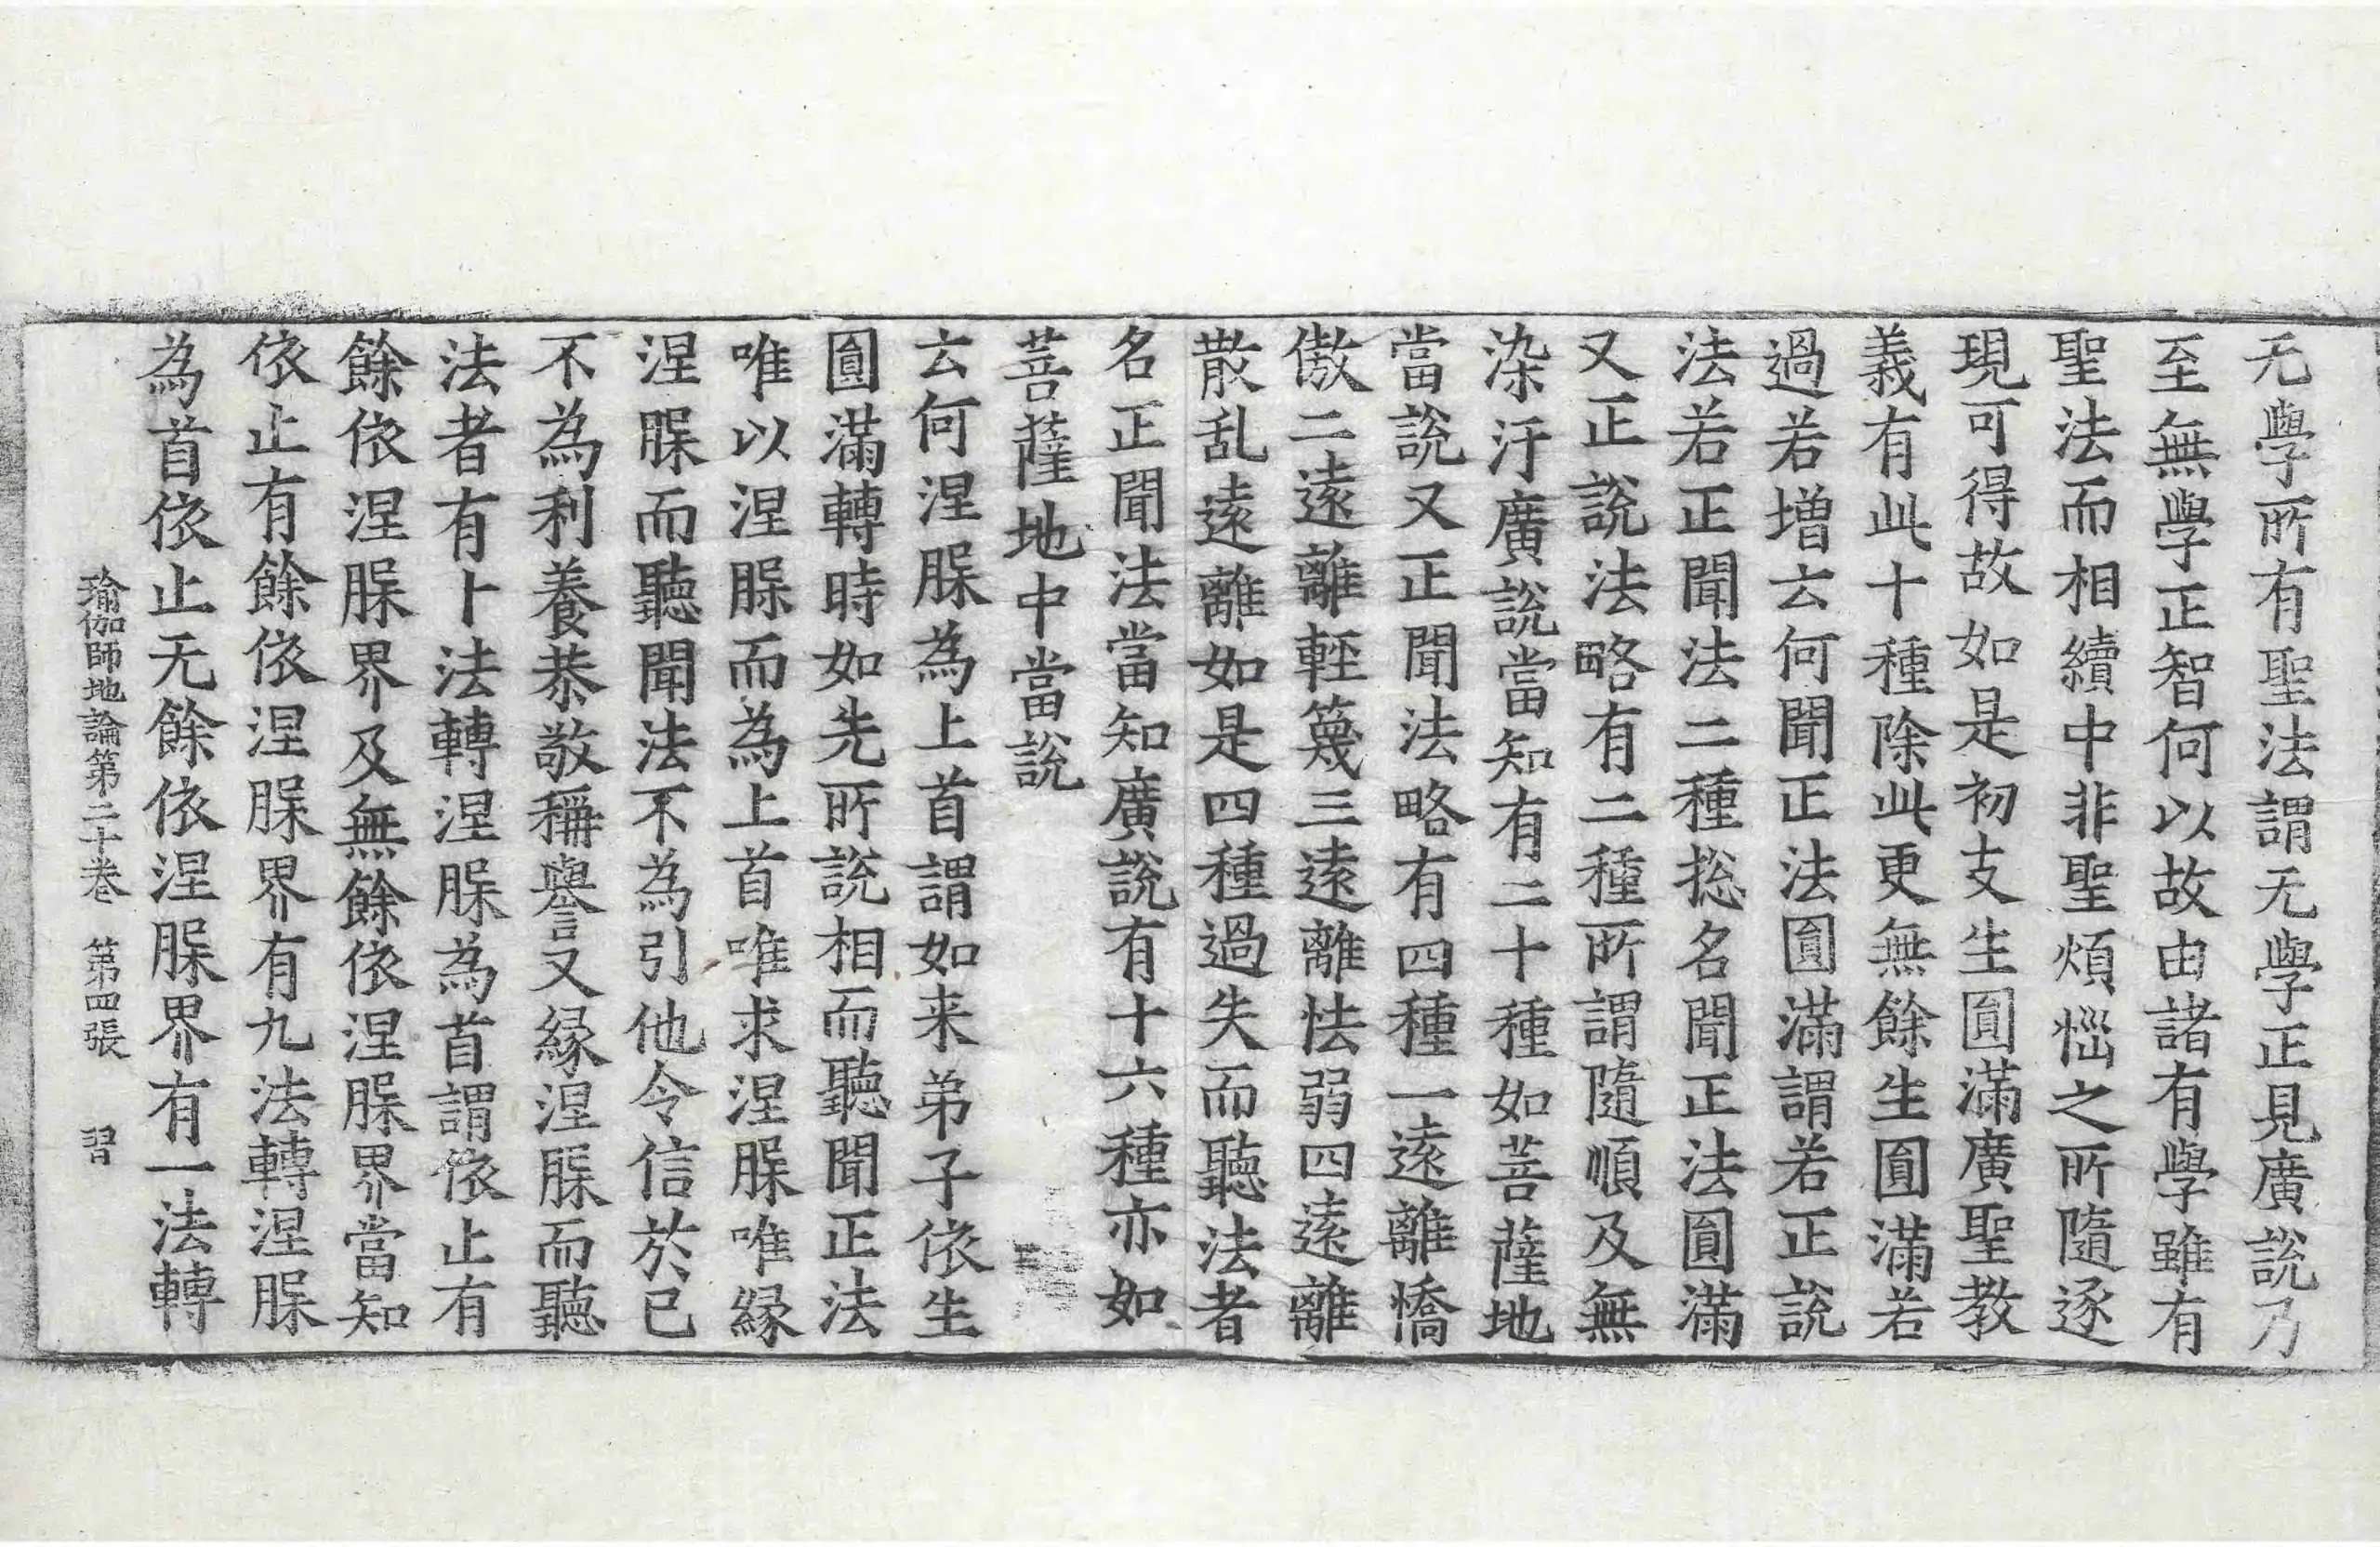 无學所有聖法謂无學正見廣說乃
至無學正智何以故由諸有學雖有
聖法而相續中非聖煩惱之所隨逐
現可得故如是初支生圎滿廣聖教
義有此十種除此更無餘生圎滿若
過若增云何聞正法圎滿謂若正說
法若正聞法二種捴名聞正法圎滿
又正說法略有二種所謂隨順及無
染汙廣說當知有二十種如菩薩地
當說又正聞法略有四種一遠離憍
傲二遠離輕篾三遠離怯弱四遠離
散乱遠離如是四種過失而聽法者
名正聞法當知廣說有十六種亦如
菩薩地中當說
云何涅脲為上首謂如来弟子依生
圎滿轉時如先所說相而聽聞正法
唯以涅脲而為上首唯求涅脲唯緣
涅脲而聽聞法不為引他令信於己
不為利養恭敬稱譽又緣涅脲而聽
法者有十法轉涅脲為首謂依止有
餘依涅脲界及無餘依涅脲界當知
依止有餘依涅脲界有九法轉涅脲
為首依止无餘依涅脲界有一法轉
瑜伽師地論第二十卷 第四張 習